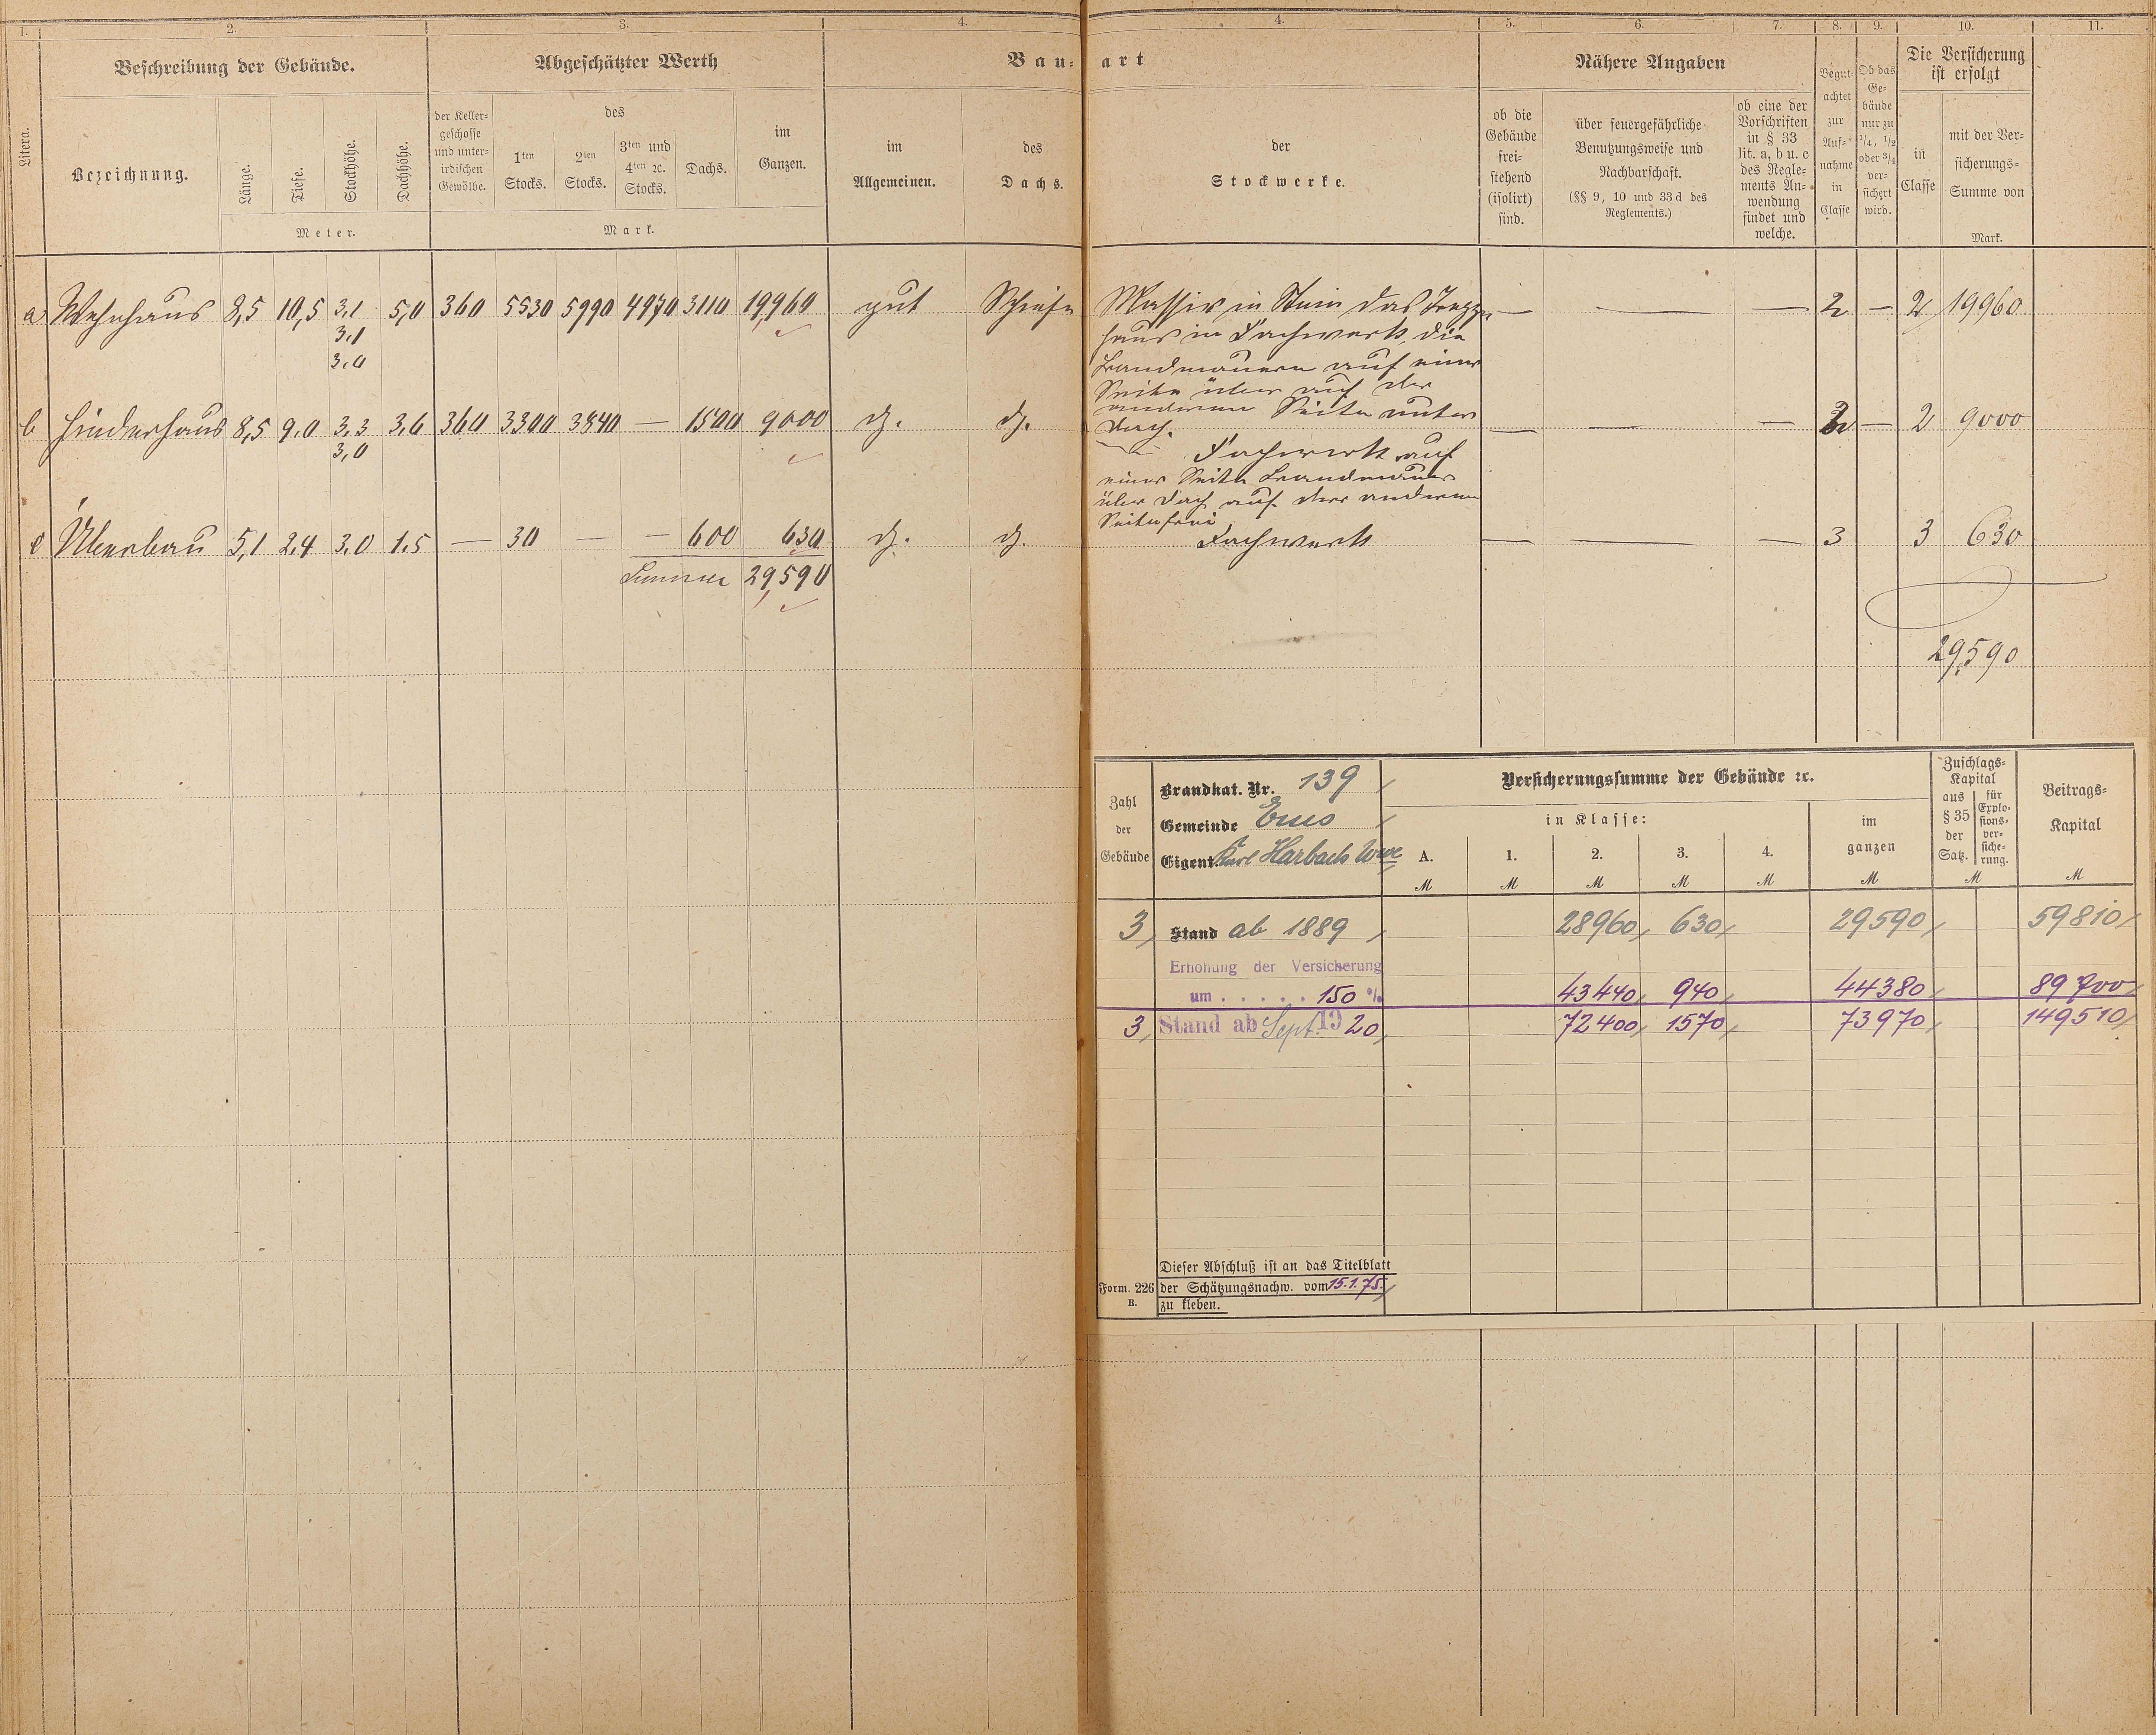 1. 2. 3. 4.
Beschreibung der Gebäude. Abgeschätzter Werth Bau-
Litera. Bezeichnung. Länge. Tiefe. Stockhöhe. Dachhöhe.
Meter.
der Kellergeschosse und unterirdischen Gewölbe.
des
1ten Stocks. 2ten Stocks. 3ten und 4ten ꝛc. Stocks. Dachs. im Ganzen.
Mark.
im Allgemeinen. des Dachs.
a Wohnhaus 8,5 10,5 3,1 5,0 360 5530 5990 4970 3110 19,960 gut Schiefer
3,1
3,0
b Hinderhaus 8,5 9.0 3,3 3,6 360 3300 3840 — 1500 9000 d. d.
3,0
c Überbau 5,1 2,4 3,0 1.5 — 30 — — 600 630 d. d.
Summe 29,590
4. 5. 6. 7. 8. 9. 10. 11.
art Nähere Angaben
der Stockwerke.
ob die
Gebäude
frei-
stehend
(isolirt)
sind.
über feuergefährliche
Benutzungsweise und
Nachbarschaft.
(§§ 9, 10 und 33d des
Reglements.)
ob eine der
Vorschriften
in § 33
lit. a, b u. c
des Regle-
ments An-
wendung
findet und
welche.
Begut-
achtet
zur
Auf-
nahme
in
Classe
Ob das
Ge-
bäude
nur zu
1/4, 1/2
oder 3/4
ver-
sichert
wird.
Die Versicherung
ist erfolgt
in
Classe
mit der Ver-
sicherungs-
Summe von
Mark.
Massiv in Stein das Treppen — — — 2 — 2 19960
haus in Fachwerk, die
Brandmauern auf einer
Seite über auf der
anderen Seite unter
Dach. — — — 2 — 2 9000
Fachwerk auf
einer Seite Brandmauer
über Dach auf der anderen
Seite frei
Fachwerk — — — 3 3 630
29,590
Zahl
der
Gebäude
Brandkat. Nr. 139
Gemeinde Ems
Eigent. Karl Harbach Wwe
Versicherungssumme der Gebäude ꝛc.
in Klasse:
A. 1. 2. 3. 4.
im
ganzen
M M M M M M
Zuschlags-
Kapital
aus
§ 35
der
Satz.
für
Explo-
sions-
ver-
siche-
rung.
M
Beitrags-
Kapital
M
3, Stand ab 1889 28960, 630, 29590, 59810,
Erhöhung der Versicherung
um . . . . . 150 % 43440, 940, 44380, 89700,
3, Stand ab Sept. 1920, 72400, 1570, 73970, 149510,
Form. 226
B.
Dieser Abschluß ist an das Titelblatt
der Schätzungsnachw. vom 15.1.75.
zu kleben.